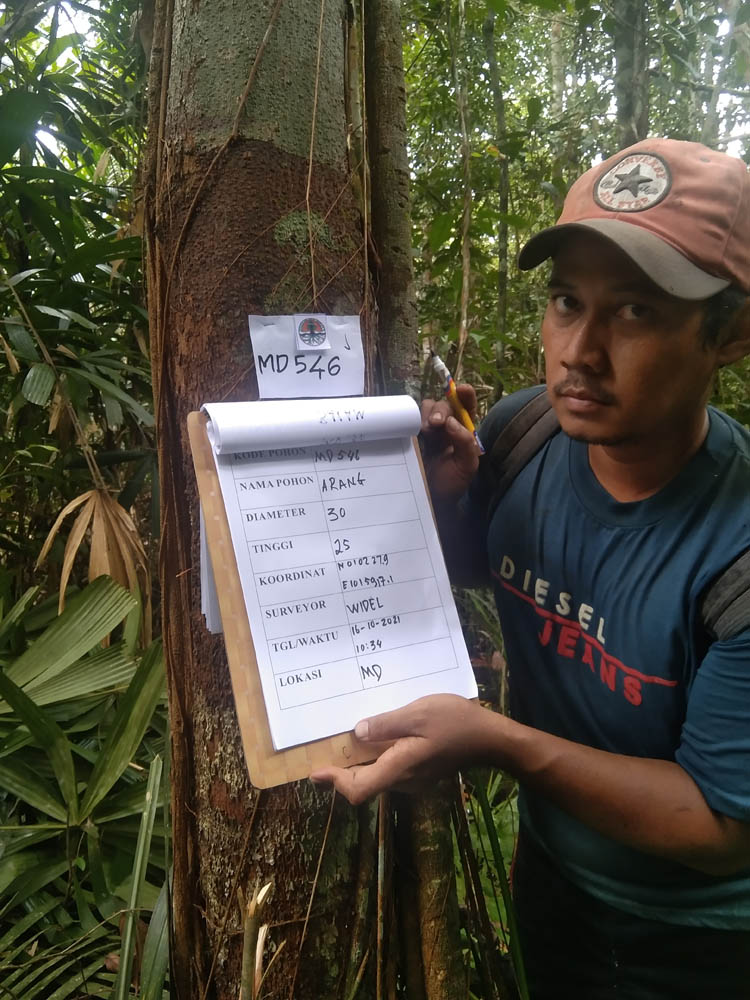 CONVERSE
ALL STAR
MD 546
KODE POHON MD546
NAMA POHON ARANG
DIAMETER 30
TINGGI 25
KOORDINAT N 0102 27.9
E 101 59 17.1
SURVEYOR WIDEL
TGL/WAKTU 16-10-2021
10:34
LOKASI MD
DIESEL
JEANS